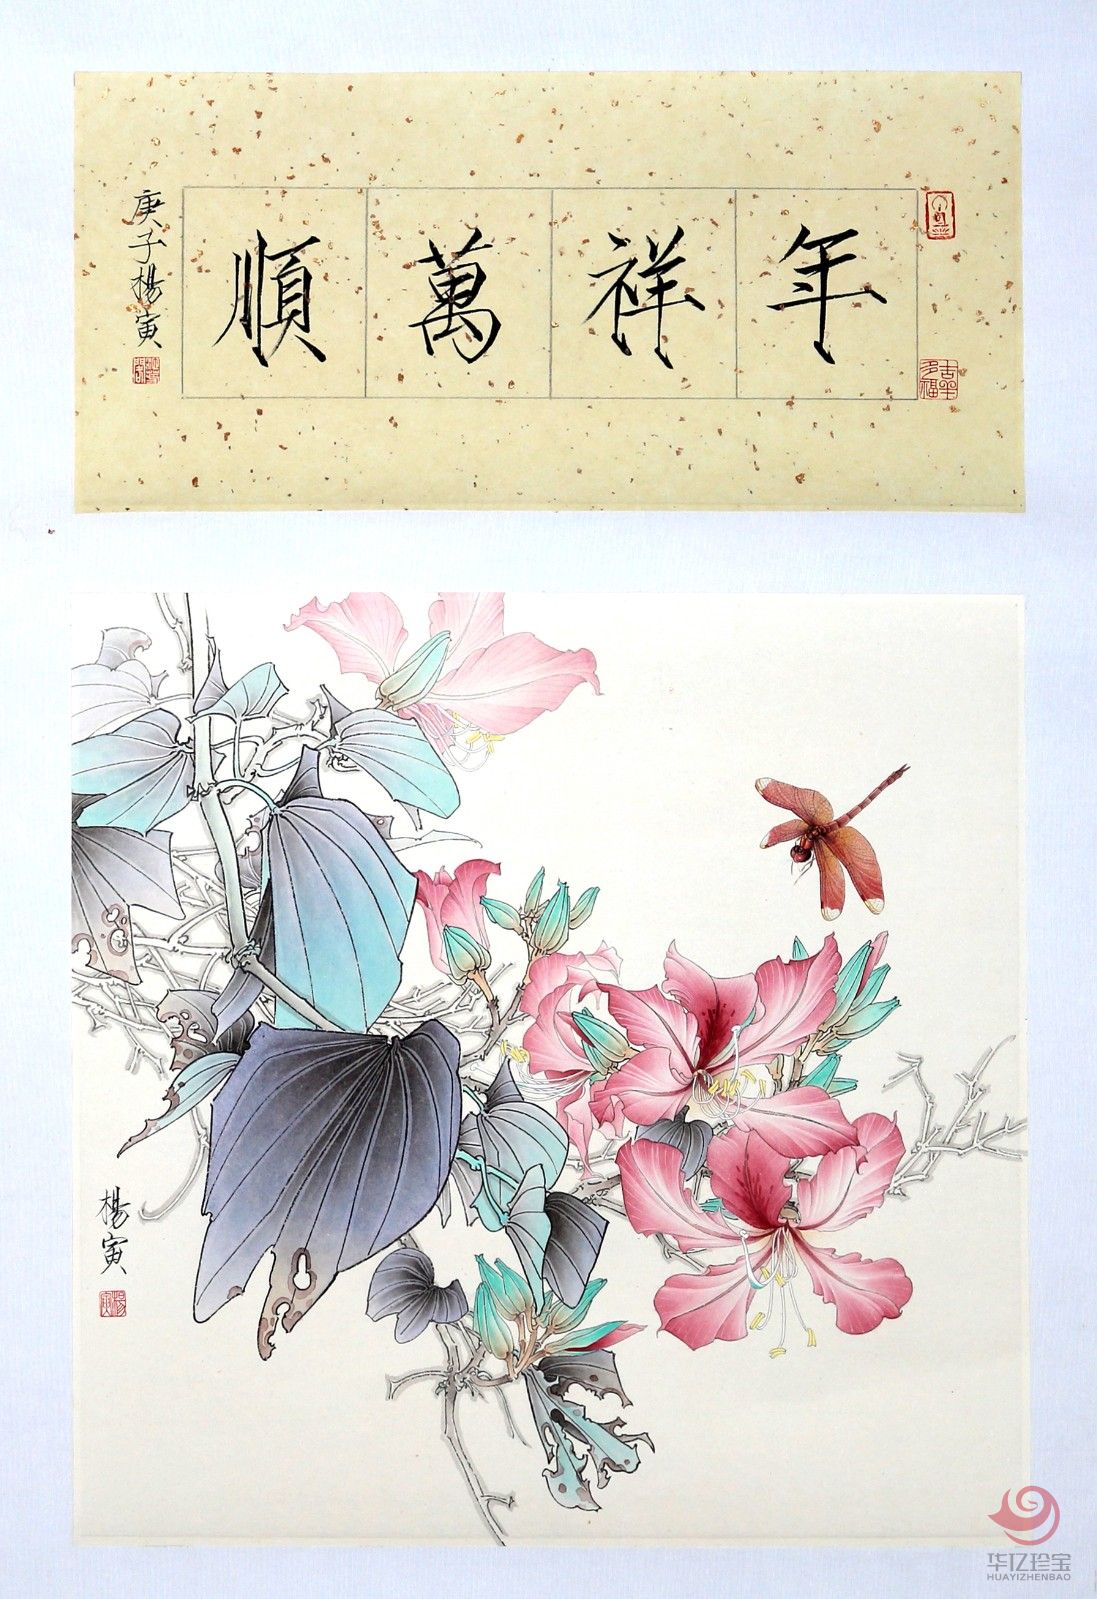 年祥萬順
庚子楊寅
吉羊多福
楊寅
楊寅
华亿珍宝
HUAYIZHENBAO